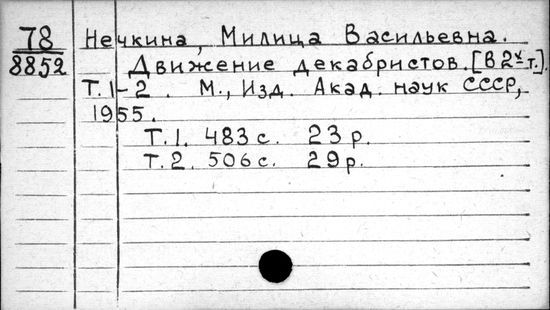 78 Нечкина, Милица Васильевна.
8852 Движение декабристов. [В 2х т.].
Т. 1-2. М., Изд. Акад. наук СССР,
1955.
Т. 1. 483 с. 23 р.
Т. 2. 506 с. 29 р.